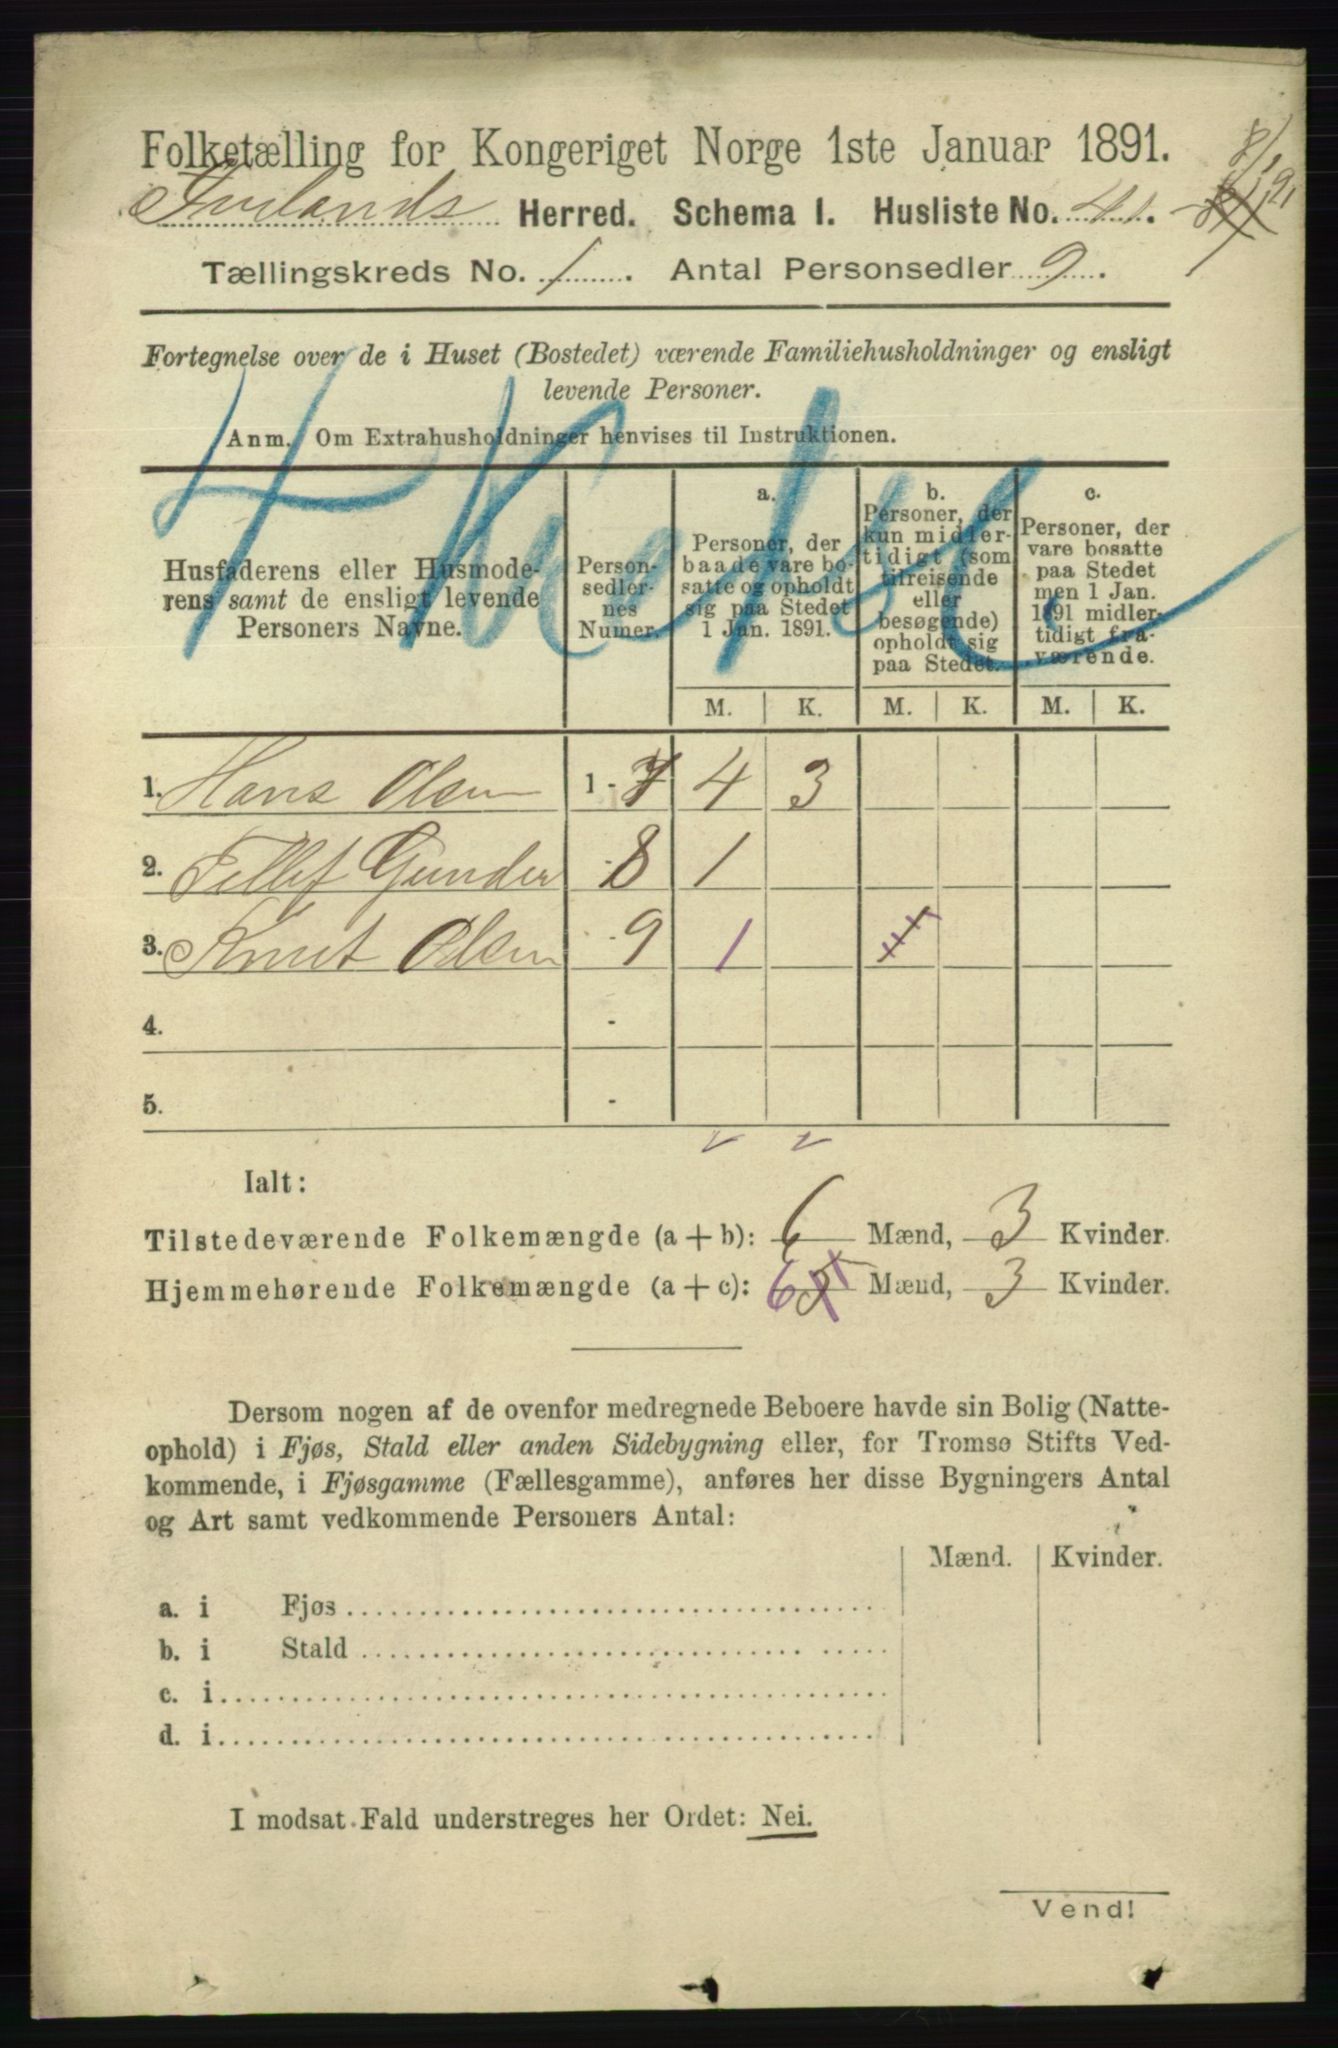 Folketælling for Kongeriget Norge 1ste Januar 1891.
Herred. Schema 1. Husliste No. 41.
Tællingskreds No. 1. Antal Personsedler 9.
Fortegnelse over de i Huset (Bostedet) værende Familiehusholdninger og ensligt
levende Personer.
Anm. Om Extrahusholdninger henvises til Instruktionen.
Husfaderens eller Husmode-
rens samt de ensligt levende
Personers Navne.
Person-
sedler-
nes
Numer.
a.
Personer, der
baade vare bo-
satte og opholdt
sig paa Stedet
1 Jan. 1891.
b.
Personer, der
kun midler-
tidigt (som
tilreisende
eller
besøgende)
opholdt sig
paa Stedet.
c.
Personer, der
vare bosatte
paa Stedet
men 1 Jan.
1891 midler-
tidigt fra-
værende.
M. K. M. K. M. K.
1. Hans Olsen 1 - 7 4 3
2. Tellef Gunder 8 1
3. Knut Olsen 9 1
4. -
5. -
Ialt:
Tilstedeværende Folkemængde (a + b): 6 Mænd, 3 Kvinder.
Hjemmehørende Folkemængde (a + c): 6 5 Mænd, 3 Kvinder.
Dersom nogen af de ovenfor medregnede Beboere havde sin Bolig (Natte-
ophold) i Fjøs, Stald eller anden Sidebygning eller, for Tromsø Stifts Ved-
kommende, i Fjøsgamme (Fællesgamme), anføres her disse Bygningers Antal
og Art samt vedkommende Personers Antal:
Mænd. Kvinder.
a. i Fjøs
b. i Stald
c. i
d. i
I modsat Fald understreges her Ordet: Nei.
Vend!